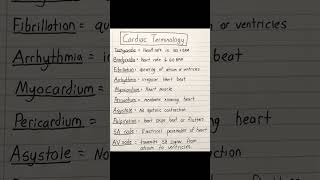 Cardiac Terminology
Tachycardia = Heart rate is 100 > BPM
Bradycardia = Heart rate < 60 BPM
Fibrillation = quivering of atrium or ventricles
Arrhythmia = irregular heart beat
Myocardium = Heart muscle
Pericardium = membrane surrounding heart
Asystole = No systolic contraction
Palpitation = heart skips beat or flutters
SA node = Electrical pacemaker of heart
AV node = transmits SA signal from
atrium to ventricles
Fibrillation =
Arrhythmia =
Myocardium =
Pericardium =
Asystole = No
atrium or ventricles
beat
heart